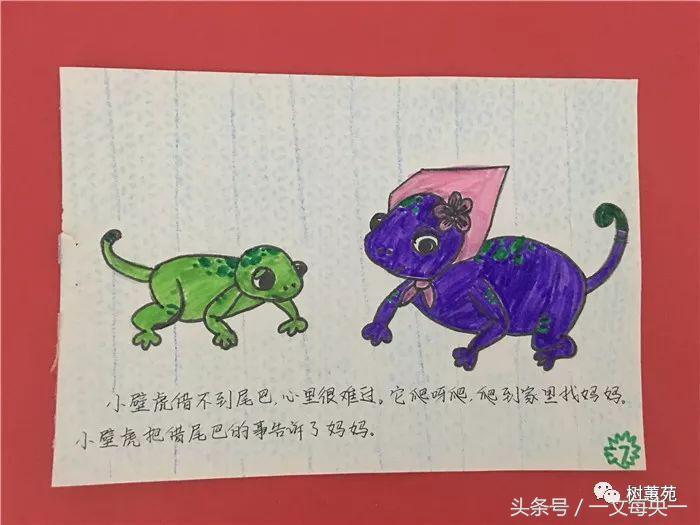 小壁虎借不到尾巴，心里很难过。它爬呀爬，爬到家里找妈妈。
小壁虎把借尾巴的事告诉了妈妈。
7
树董苑
头条号／一文母央一